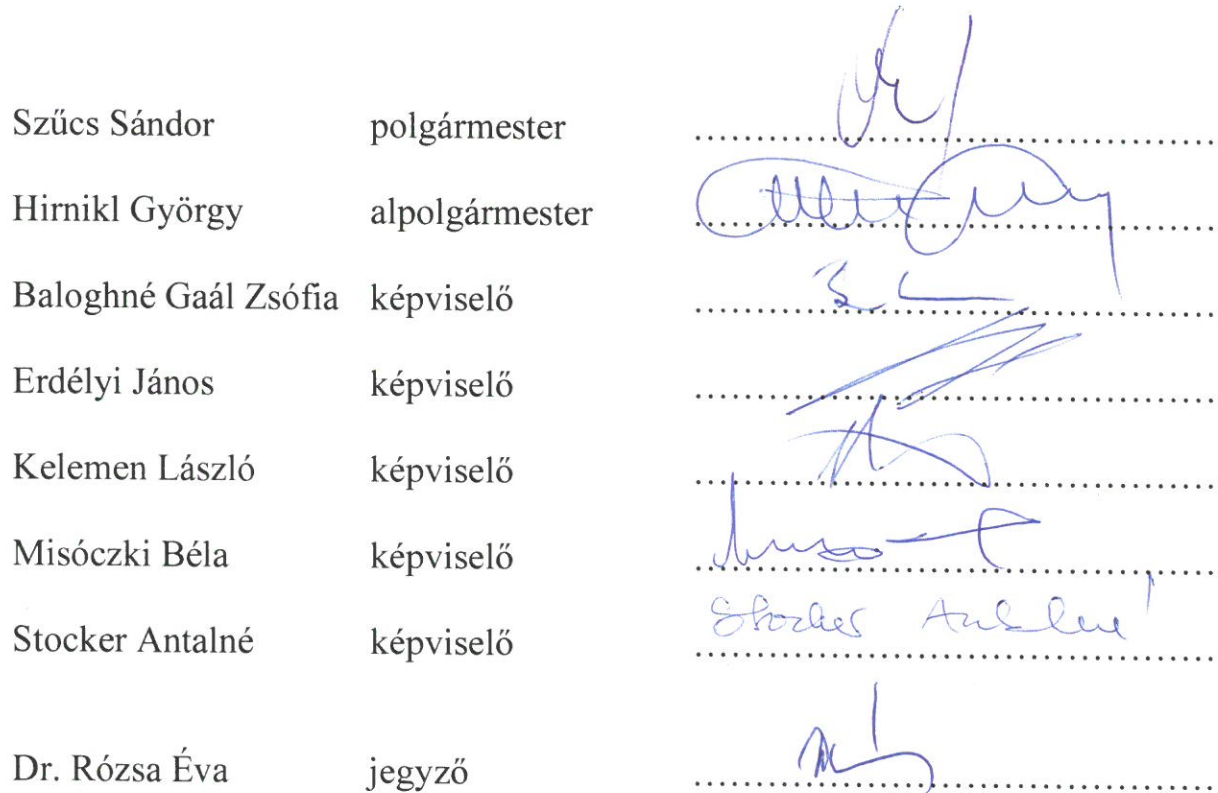 Szűcs Sándor polgármester
Hirnikl György alpolgármester
Baloghné Gaál Zsófia képviselő
Erdélyi János képviselő
Kelemen László képviselő
Misóczki Béla képviselő
Stocker Antalné képviselő Stocker Antalné
Dr. Rózsa Éva jegyző